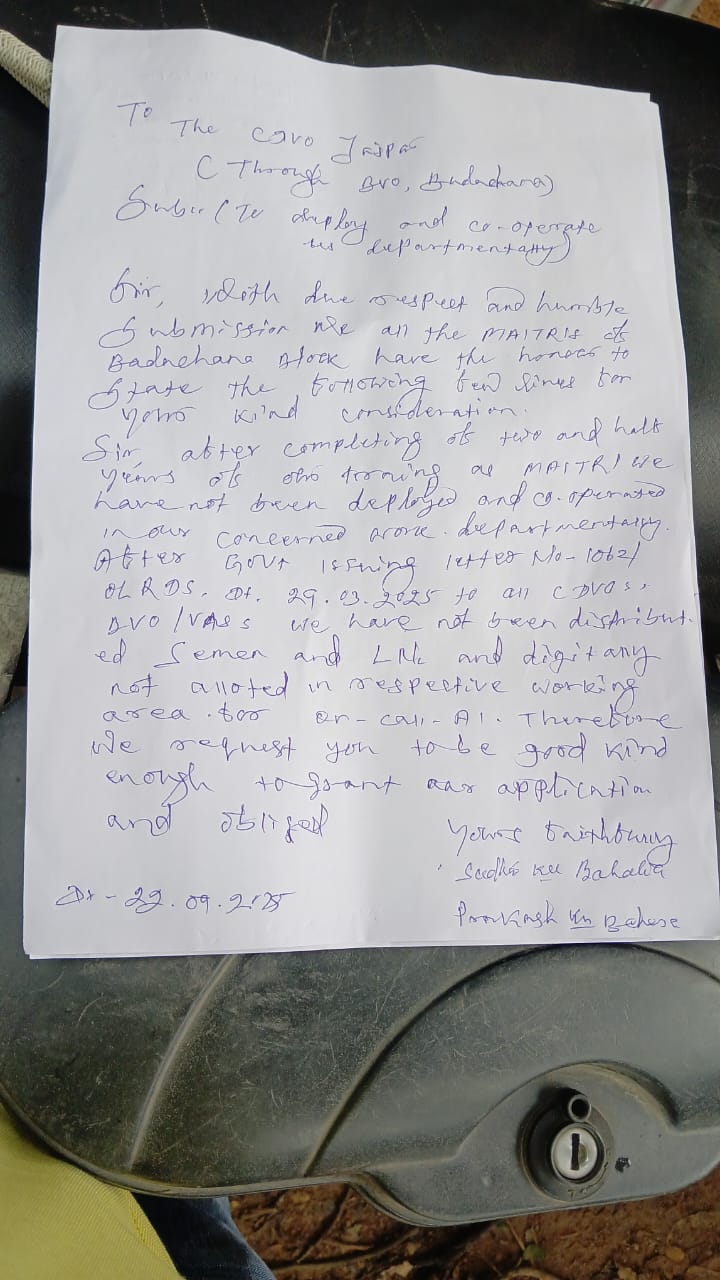 To
The CDVO Jajpur
(Through BVO, Badachana)
Sub:- (To deploy and co-operate
us departmentally)
Sir, With due respect and humble
Submission We all the MAITRIs of
Badachana Block have the honour to
State the following few lines for
your kind consideration.
Sir after completing of two and half
years of our training as MAITRI we
have not been deployed and co-operated
in our concerned departmentally.
After Govt issuing letter No- 10621
Dt. 29.03.2025 to all CDVOs,
BVO/VASs we have not been distribut-
ed Semen and LN2 and digitally
not alloted in respective working
area for on-call-AI. Therefore
We request you to be good kind
enough to grant our application
and obliged
Yours faithfully
Ku
Dt - 22.09.2025
Ku Behera